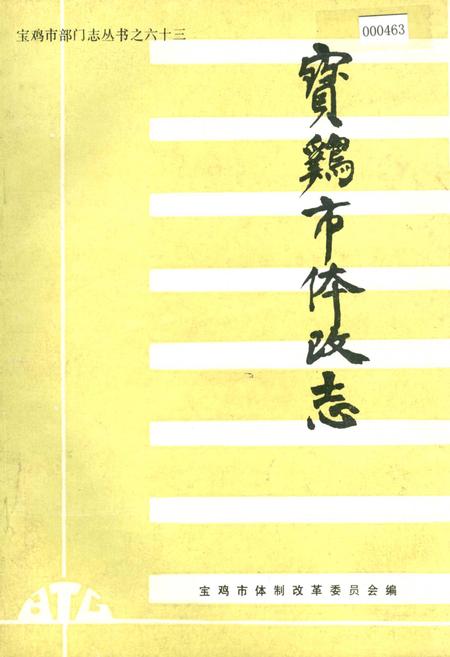 宝鸡市部门志丛书之六十三
000463
寳鷄市体改志
宝鸡市体制改革委员会编
BTG